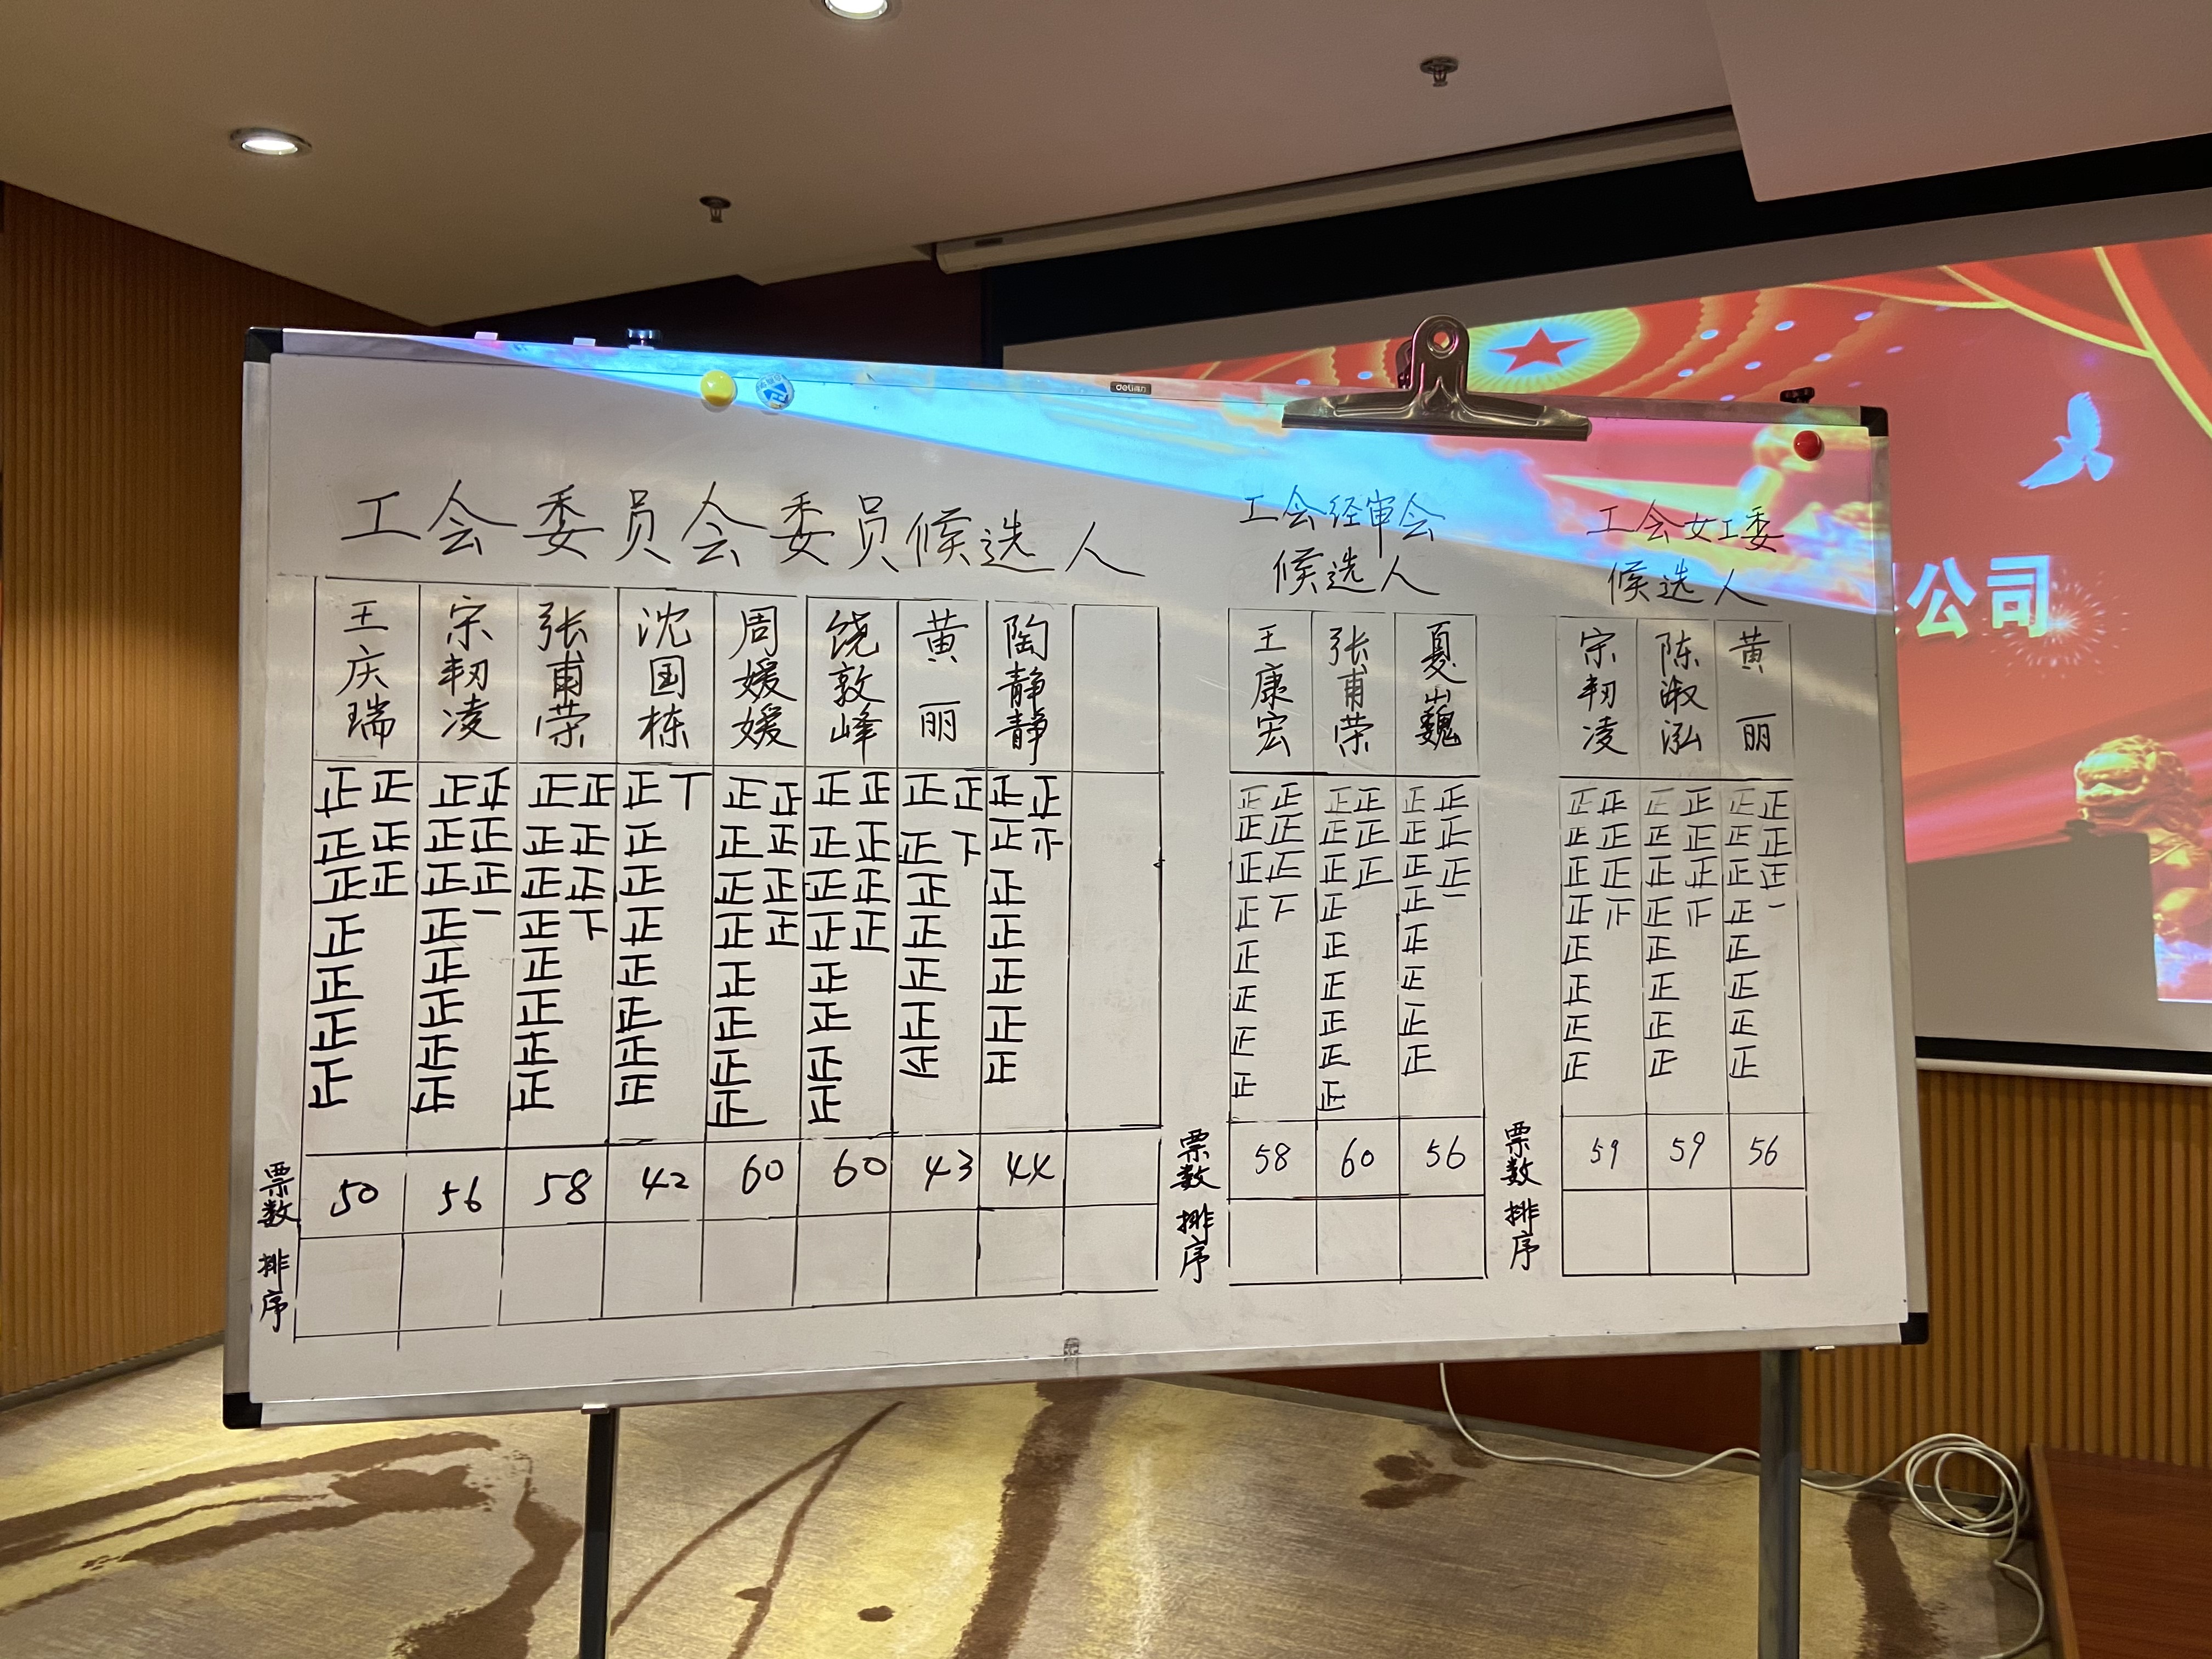 deli得力
工会委员会委员候选人
王庆瑞 宋韧凌 张甫荣 沈国栋 周媛媛 饶敦峰 黄丽 陶静静
正正 正正 正正 正丅 正正 正正 正正 正正
正正 正正 正正 正 正正 正正 正下 正𣥂
正正 正正 正正 正 正正 正正 正 正
正 正一 正下 正 正正 正正 正 正
正 正 正 正 正 正 正 正
正 正 正 正 正 正 正 正
正 正 正 正 正 正 正 正
正 正 正 正 正
票数 50 56 58 42 60 60 43 44
排序
工会经审会
候选人
王康宏 张甫荣 夏巍
正正 正正 正正
正正 正正 正正
正正 正正 正正
正下 正 正一
正 正 正
正 正 正
正 正 正
正 正 正
正
票数 58 60 56
排序
工会女工委
候选人
宗韧凌 陈淑泓 黄丽
正正 正正 正正
正正 正正 正正
正正 正正 正正
正𣥂 正𣥂 正一
正 正 正
正 正 正
正 正 正
正 正 正
票数 59 59 56
排序
公司